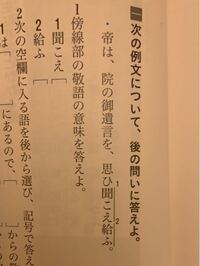 一 次の例文について、後の問いに答えよ。
・帝は、院の御遺言を、思ひ聞こえ給ふ。
1
2
1傍線部の敬語の意味を答えよ。
1聞こえ[
2給ふ[
2次の空欄に入る語を後から選び、記号で答え
1は[
]にあるので、[
]からの